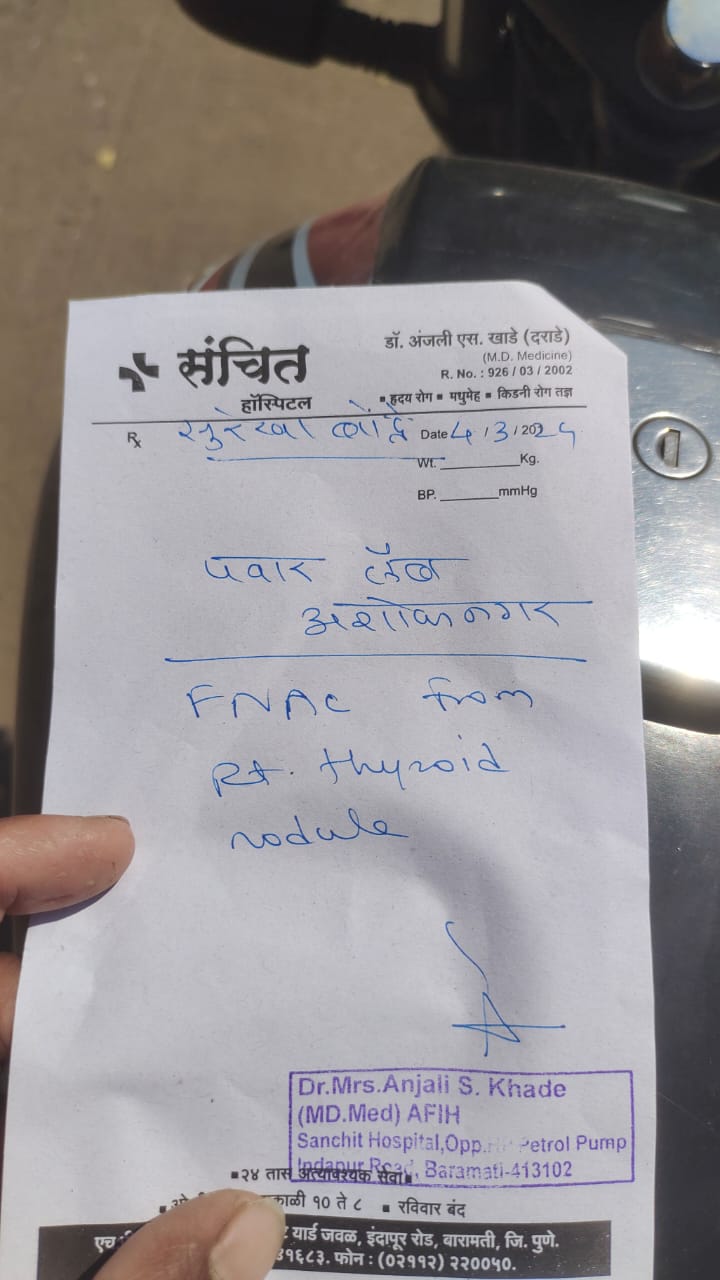 संचित
हॉस्पिटल
डॉ. अंजली एस. खाडे (दराडे)
(M.D. Medicine)
R. No. : 926 / 03 / 2002
▪ हृदय रोग ▪ मधुमेह ▪ किडनी रोग तज्ञ
Rx सुरेखा Date 4 / 3 / 2024
Wt. ________ Kg.
BP. ________ mmHg
पवार लॅब
अशोकनगर
FNAC from
Rt. thyroid
nodule
Dr.Mrs.Anjali S. Khade
(MD.Med) AFIH
Sanchit Hospital,Opp. Petrol Pump
Indapur Road, Baramati-413102
▪ २४ तास अत्यावश्यक सेवा ▪
१० ते ८ ▪ रविवार बंद
यार्ड जवळ, इंदापूर रोड, बारामती, जि. पुणे.
३१६८३. फोन : (०२११२) २२००५०.